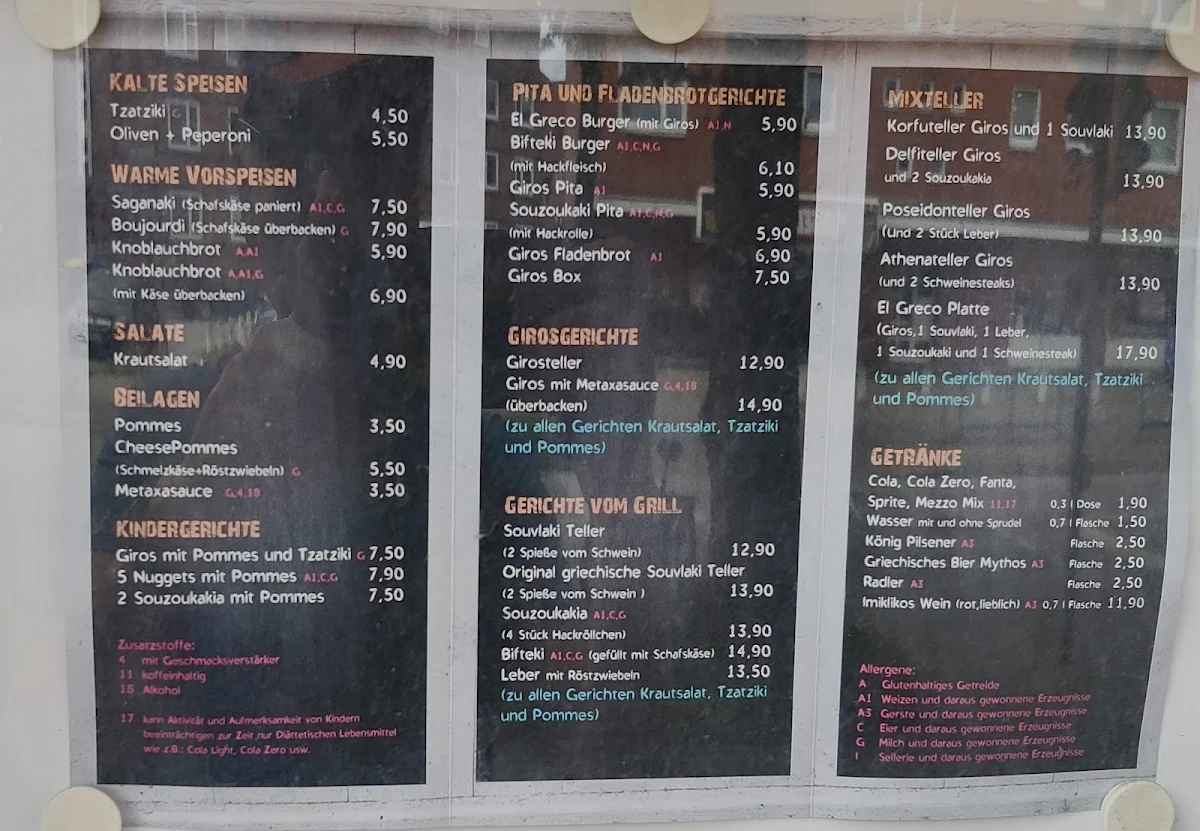 KALTE SPEISEN
Tzatziki G 4,50
Oliven + Peperoni 5,50
WARME VORSPEISEN
Saganaki (Schafskäse paniert) A1,C,G 7,50
Boujourdi (Schafskäse überbacken) G 7,90
Knoblauchbrot A,A1 5,90
Knoblauchbrot A,A1,G
(mit Käse überbacken) 6,90
SALATE
Krautsalat 4,90
BEILAGEN
Pommes 3,50
CheesePommes
(Schmelzkäse+Röstzwiebeln) G 5,50
Metaxasauce G,4,18 3,50
KINDERGERICHTE
Giros mit Pommes und Tzatziki G 7,50
5 Nuggets mit Pommes A1,C,G 7,90
2 Souzoukakia mit Pommes 7,50
Zusatzstoffe:
4 mit Geschmacksverstärker
11 koffeinhaltig
18 Alkohol
17 kann Aktivität und Aufmerksamkeit von Kindern
beeinträchtigen zur Zeit,nur Diätetischen Lebensmittel
wie z.B.: Cola Light, Cola Zero usw.
PITA UND FLADENBROTGERICHTE
El Greco Burger (mit Giros) A1,N 5,90
Bifteki Burger A1,C,N,G
(mit Hackfleisch) 6,10
Giros Pita A1 5,90
Souzoukaki Pita A1,C,N,G
(mit Hackrolle) 5,90
Giros Fladenbrot A1 6,90
Giros Box 7,50
GIROSGERICHTE
Girosteller 12,90
Giros mit Metaxasauce G,4,18
(überbacken) 14,90
(zu allen Gerichten Krautsalat, Tzatziki
und Pommes)
GERICHTE VOM GRILL
Souvlaki Teller
(2 Spieße vom Schwein) 12,90
Original griechische Souvlaki Teller
(2 Spieße vom Schwein ) 13,90
Souzoukakia A1,C,G
(4 Stück Hackröllchen) 13,90
Bifteki A1,C,G (gefüllt mit Schafskäse) 14,90
Leber mit Röstzwiebeln 13,50
(zu allen Gerichten Krautsalat, Tzatziki
und Pommes)
MIXTELLER
Korfuteller Giros und 1 Souvlaki 13,90
Delfiteller Giros
und 2 Souzoukakia 13,90
Poseidonteller Giros
(und 2 Stück Leber) 13,90
Athenateller Giros
(und 2 Schweinesteaks) 13,90
El Greco Platte
(Giros,1 Souvlaki, 1 Leber,
1 Souzoukaki und 1 Schweinesteak) 17,90
(zu allen Gerichten Krautsalat, Tzatziki
und Pommes)
GETRÄNKE
Cola, Cola Zero, Fanta,
Sprite, Mezzo Mix 11,17 0,3 l Dose 1,90
Wasser mit und ohne Sprudel 0,7 l Flasche 1,50
König Pilsener A3 Flasche 2,50
Griechisches Bier Mythos A3 Flasche 2,50
Radler A3 Flasche 2,50
Imiklikos Wein (rot,lieblich) A3 0,7 l Flasche 11,90
Allergene:
A Glutenhaltiges Getreide
A1 Weizen und daraus gewonnene Erzeugnisse
A3 Gerste und daraus gewonnene Erzeugnisse
C Eier und daraus gewonnene Erzeugnisse
G Milch und daraus gewonnene Erzeugnisse
I Sellerie und daraus gewonnene Erzeugnisse